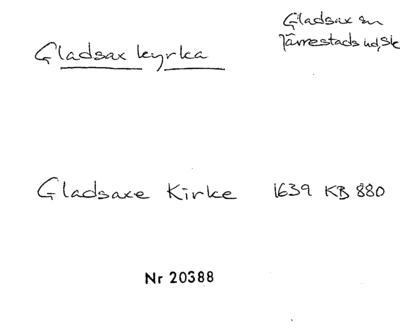 Gladsax kyrka
Gladsax sn
Järrestads hd, Sk
Gladsaxe Kirke 1639 KB 880
Nr 20388